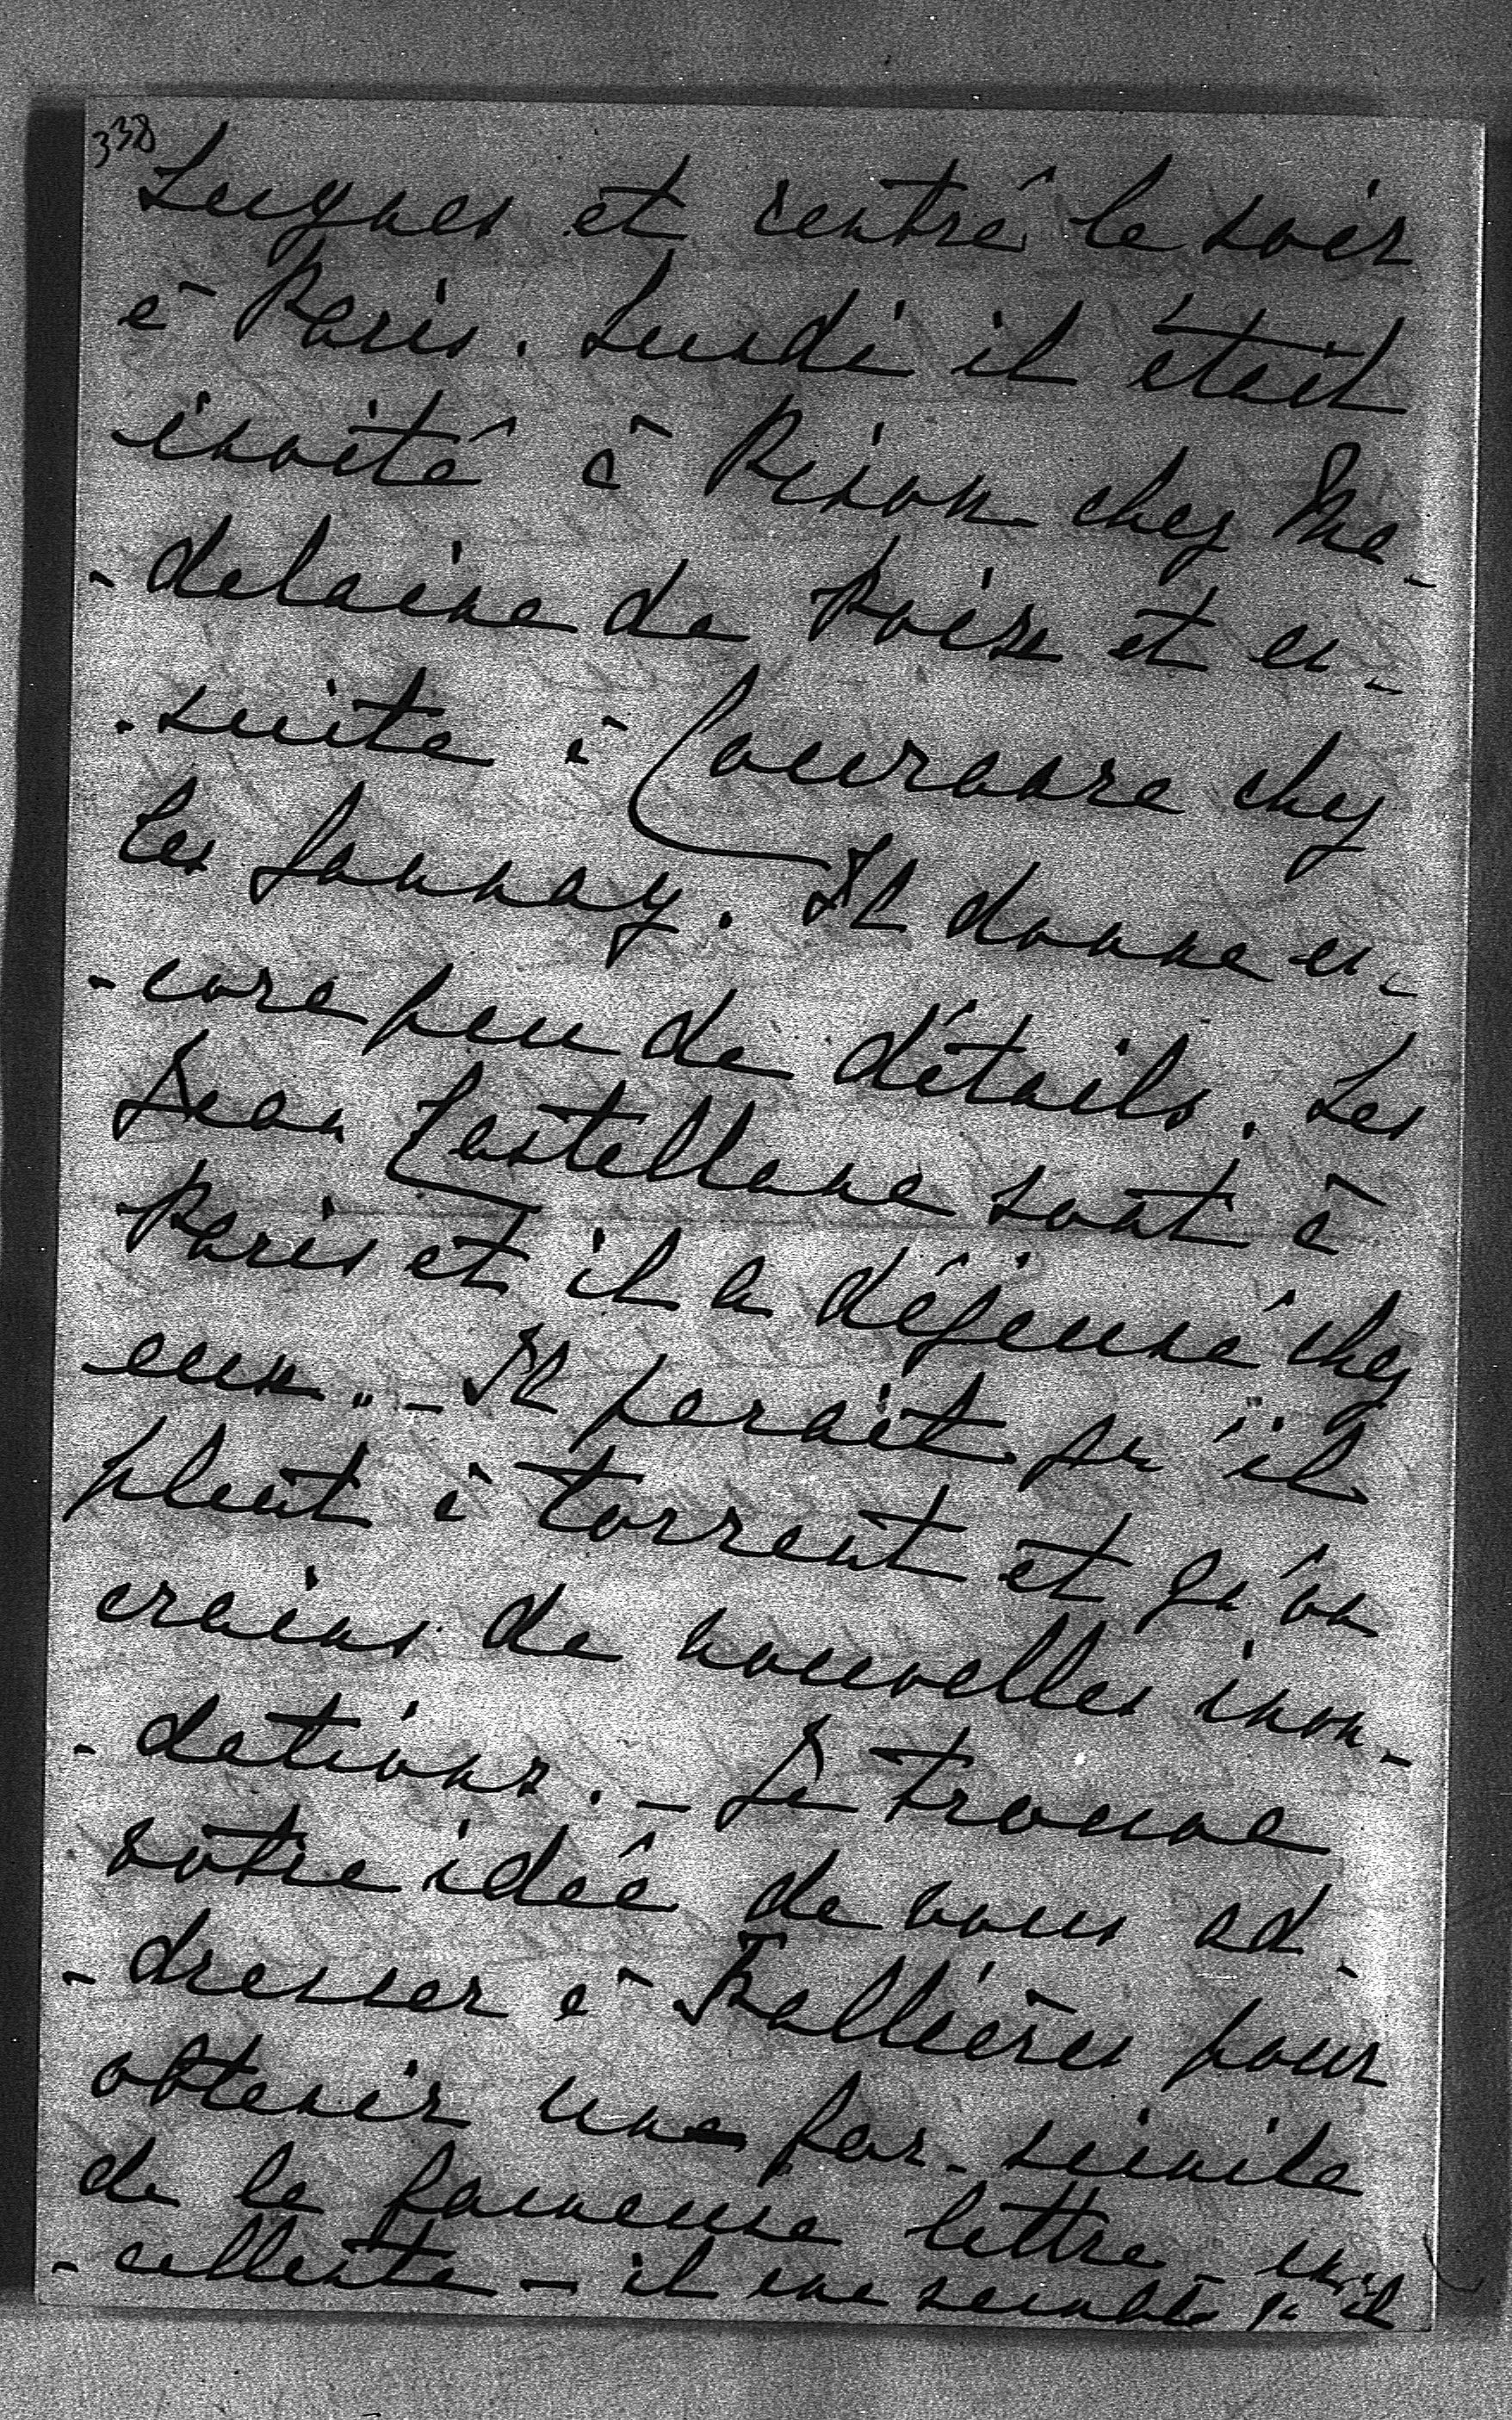 338
Luynes et rentré le soir
à Paris. Lundi il était
invité à Pinon chez Ma-
-delaine de Poix et en-
-suite à Courances chez
les Ganay. Il donne en-
-core peu de détails. Les
Jean Castellane sont à
Paris et il a déjeuné chez
eux. - Il paraît qu'il
pleut à torrent et qu'on
crains de nouvelles inon-
-dations. - Je trouve
votre idée de vous ad-
-dresser à Fallières pour
obtenir une fac-simile
de la fameuse lettre ex-
-cellente - il me semble qu'il